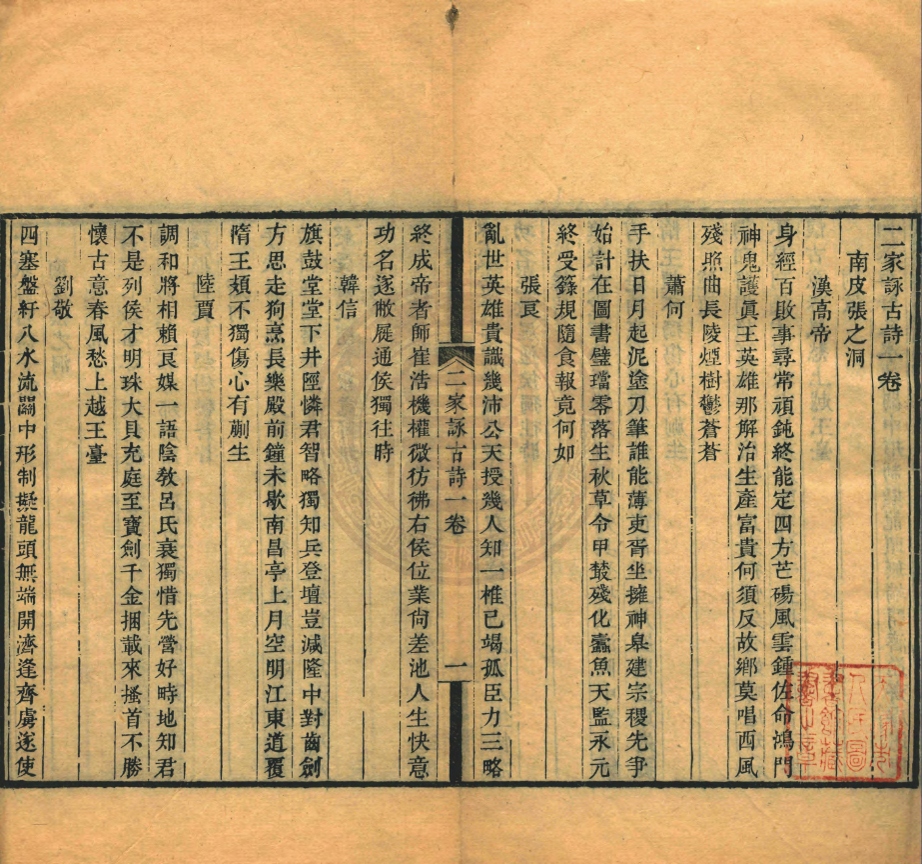 二家詠古詩一卷
南皮張之洞
漢高帝
身經百敗事尋常頑鈍終能定四方芒碭風雲鍾佐命鴻門
神鬼護眞王英雄那解治生產富貴何須反故鄉莫唱西風
殘照曲長陵煙樹鬱蒼蒼
蕭何
手扶日月起泥塗刀筆誰能薄吏胥坐擁神皋建宗稷先爭
始計在圖書璧璫零落生秋草令甲叢殘化蠹魚天監永元
終受籙規隨食報竟何如
張良
亂世英雄貴識幾沛公天授幾人知一椎已竭孤臣力三略
二家詠古詩一卷
一
終成帝者師崔浩機權微彷彿右侯位業尙差池人生快意
功名逐敝屣通侯獨往時
韓信
旗鼓堂堂下井陘憐君智略獨知兵登壇豈減隆中對齒劍
方思走狗烹長樂殿前鐘未歇南昌亭上月空明江東道覆
隋王頰不獨傷心有蒯生
陸賈
調和將相賴良媒一語陰敎呂氏衰獨惜先營好畤地知君
不是列侯才明珠大貝充庭至寶劍千金捆載來搔首不勝
懷古意春風愁上越王臺
劉敬
四塞盤紆八水流關中形制擬龍頭無端開濟逢齊虜遂使